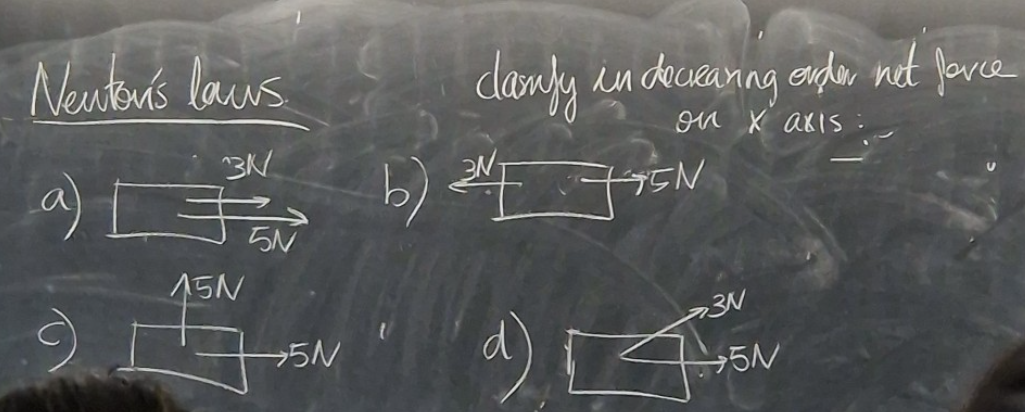 Newton's laws
clasify in decreasing order net force
on x axis:
a) 3N
5N
b) 3N 5N
c) 5N
5N
d) 3N
5N